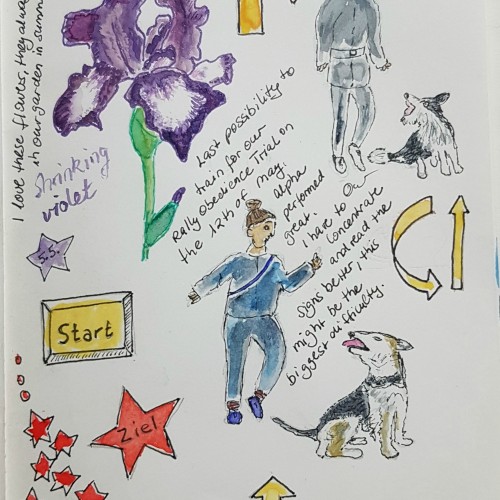 I love these flowers, they alway
in our garden in summ
shrinking
violet
5.5.
Start
Ziel
Last possibility to
train for our
Rally Obedience Trial on
the 12th of may.
alpha
performed
great.
I have to
concentrate
and read the
signs better, this
might be the
biggest difficulty.